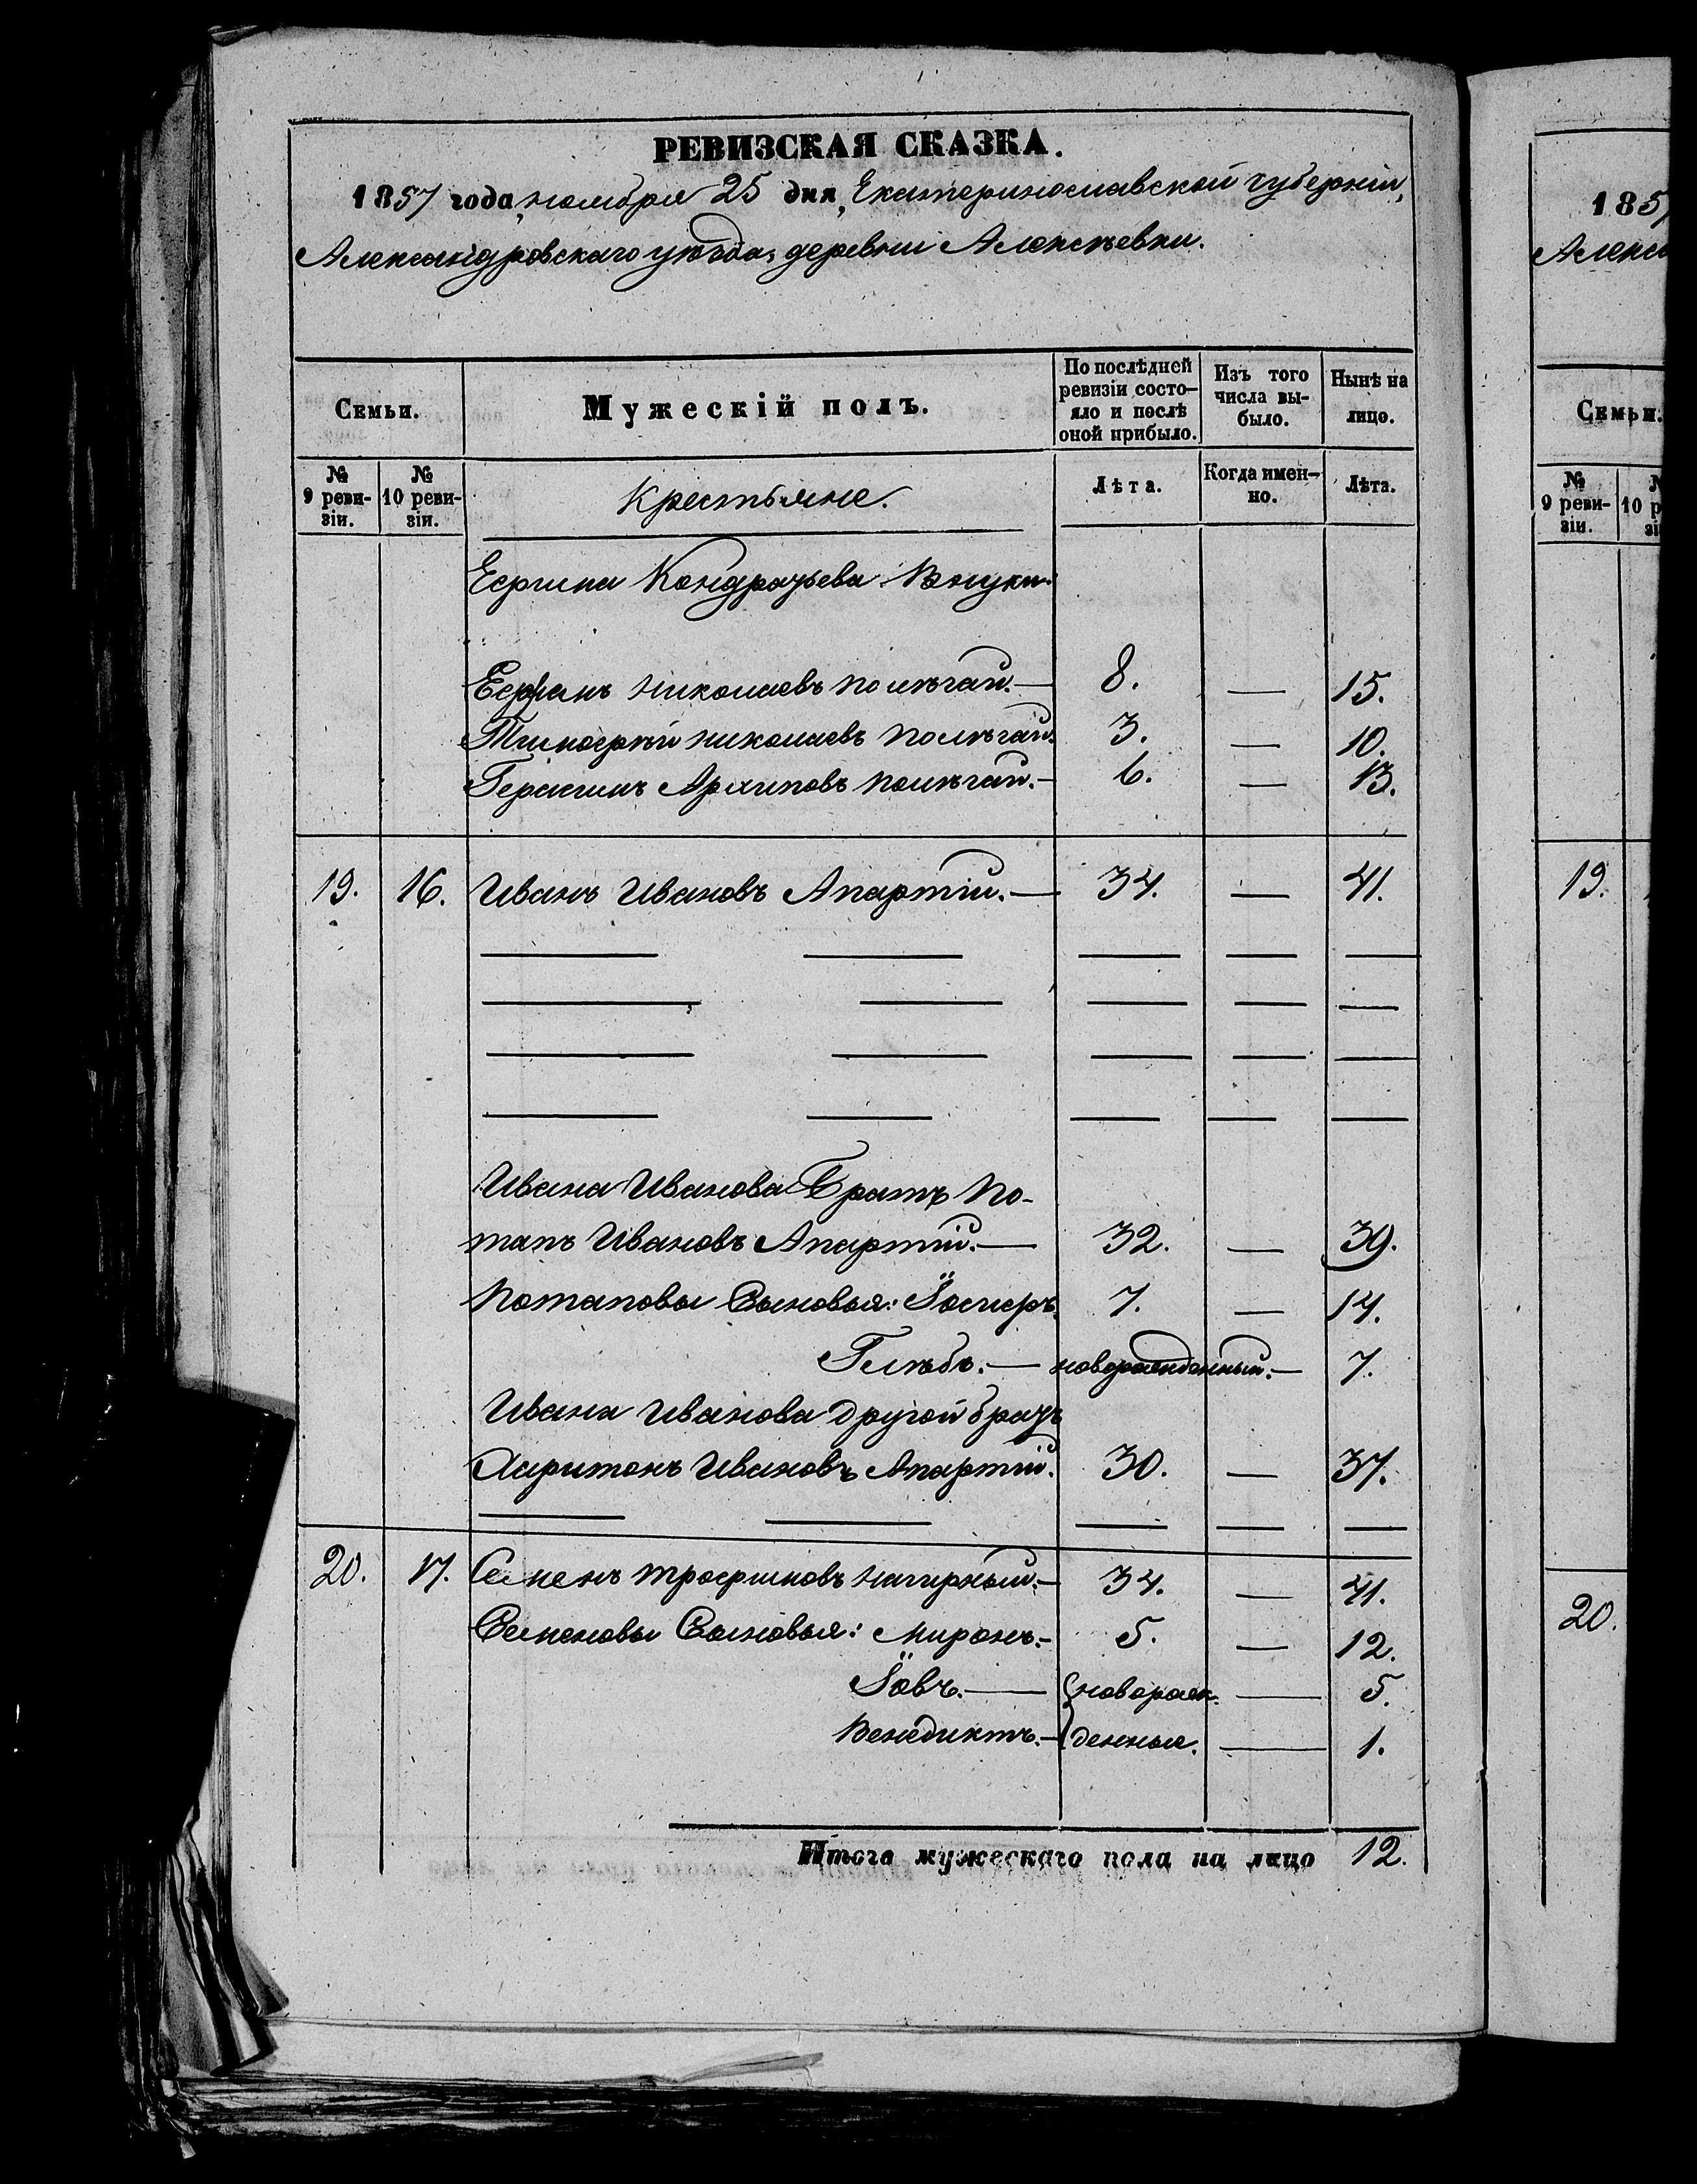 РЕВИЗСКАЯ СКАЗКА.
1857 года, ноября 25 дня, Екатеринославской губерніи,
Александровскаго уѣзда, деревни Алексѣевки.
Семьи.
Мужескій полъ.
По послѣдней ревизіи состояло и послѣ оной прибыло.
Изъ того числа выбыло.
Нынѣ на лицо.
№ 9 ревизіи.
№ 10 ревизіи.
Крестьяне.
Лѣта.
Когда именно.
Лѣта.
Ефима Кондратьева Внуки.
Николаевъ 8. — 15.
Тимофѣй Николаевъ 3. — 10.
Герасимъ Архиповъ 6. — 13.
19. 16. Иванъ Ивановъ Апартій. — 34. — 41.
Ивана Иванова Братъ По-
тапъ Ивановъ Апартій. — 32. — 39.
Потаповы Сыновья: Іосифъ 7. — 14.
Глѣбъ. — новорожденный. — 7.
Ивана Иванова другой братъ
Харитонъ Ивановъ Апартій. 30. — 37.
20. 17. Семенъ Трофимовъ Нагирный. — 34. — 41.
Семеновы Сыновья: Миронъ. — 5. — 12.
Іовъ. — новорож- — 5.
Венедиктъ. — денные. — 1.
Итого мужескаго пола на лицо 12.
185
Алекса
Семьи.
№ 9 ревизіи.
19.
20.